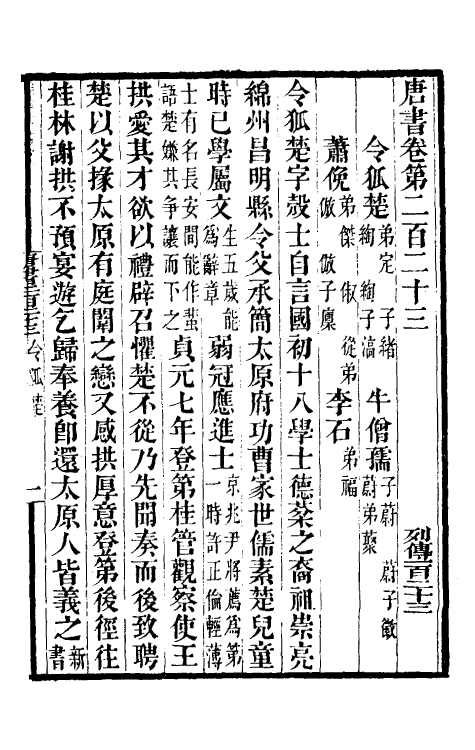 唐書卷第二百二十三　列傳一百二十三
令狐楚 弟定 子緒 綯 綯子滈　牛僧孺 子蔚 蔚子徽 蔚弟藂
蕭俛 弟傑 俶 從弟倣 倣子廩　李石 弟福
令狐楚字殼士自言國初十八學士德棻之裔祖崇亮
綿州昌明縣令父承簡太原府功曹家世儒素楚兒童
時已學屬文生五歲能爲辭章弱冠應進士京兆尹將薦爲第一時許正倫輕薄
士有名長安間能作蜚語楚嫌其争讓而下之貞元七年登第桂管觀察使王
拱愛其才欲以禮辟召懼楚不從乃先聞奏而後致聘
楚以父掾太原有庭闈之戀又感拱厚意登第後徑往
桂林謝拱不預宴遊乞歸奉養卽還太原人皆義之新書
唐書二百二十三　令狐楚　一